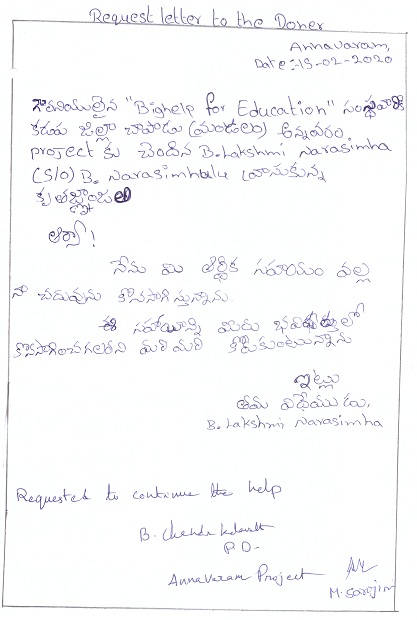 Request letter to the Doner
Annavaram,
Date :- 13-02-2020
గౌరవనీయులైన "Bighelp for Education" సంస్థవారికి
కడప జిల్లా చాపాడు (మండలం) అన్నవరం
project కు చెందిన B. Lakshmi Narasimha
(S/O) B. Narasimhulu వ్రాసుకున్న
కృతజ్ఞాంజలి
ఆర్యా!
నేను మి ఆర్థిక సహాయం వల్ల
నా చదువును కొనసాగిస్తున్నాను.
ఈ సహాయాన్ని మిరు భవిష్యత్తులో
కొనసాగించగలరని మరి మరి కోరుకుంటున్నాను
ఇట్లు
తమ విధేయుడు,
B. Lakshmi Narasimha
Requested to continue the help
B.
P.D.
Annavaram Project
M. Sarojini